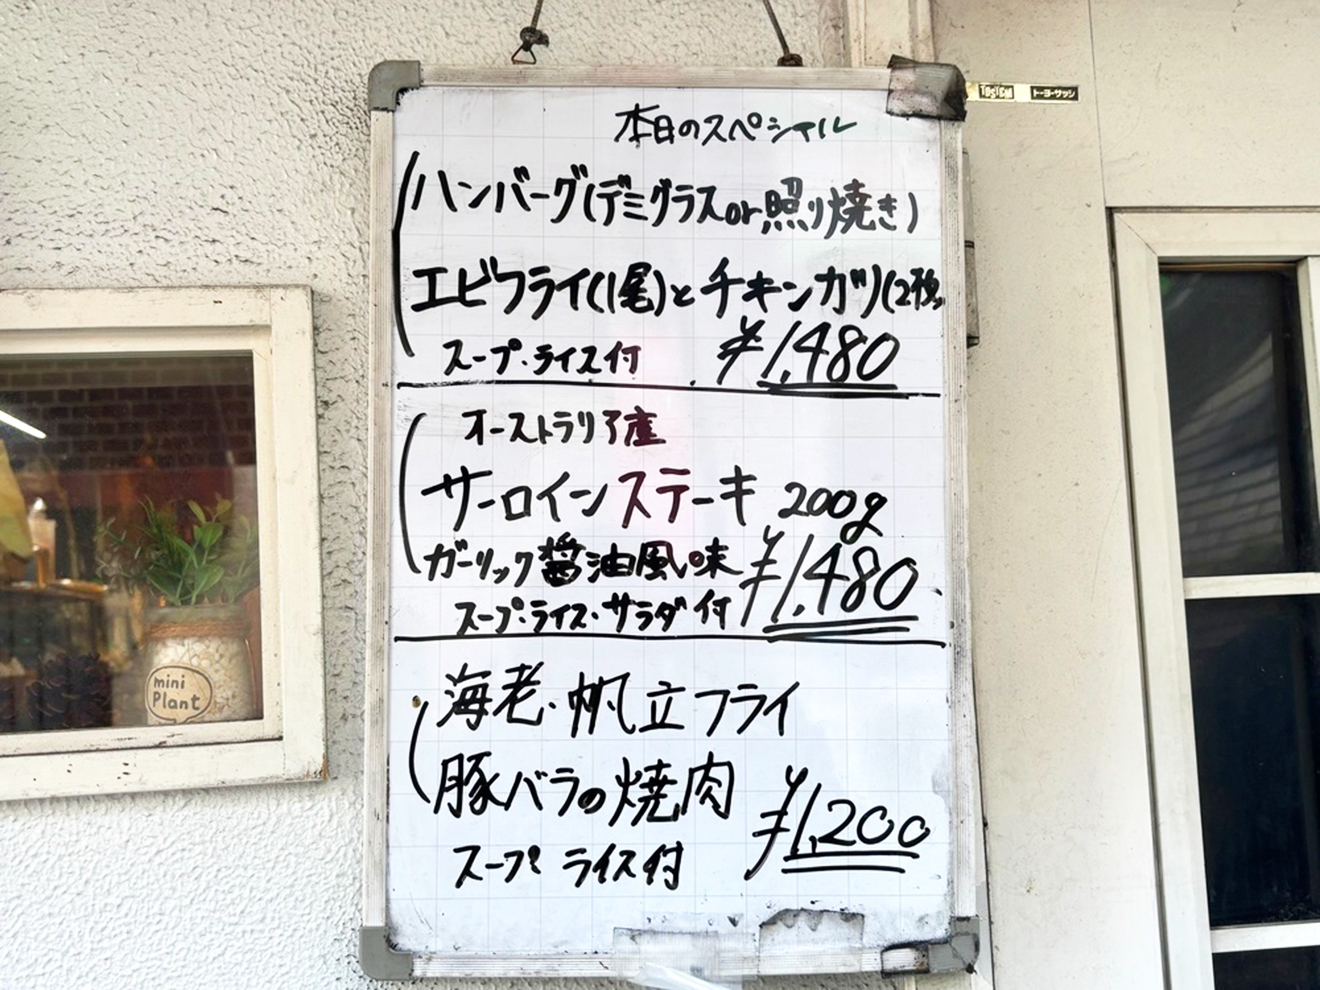 本日のスペシャル
ハンバーグ(デミグラスor照り焼き)
エビフライ(1尾)とチキンカツ(2枚)
スープ・ライス付 ¥1,480
オーストラリア産
サーロインステーキ 200g
ガーリック醤油風味 ¥1,480
スープ・ライス・サラダ付
海老・帆立フライ
豚バラの焼肉 ¥1,200
スープ ライス付
mini
Plant
TOSTEM トーヨーサッシ